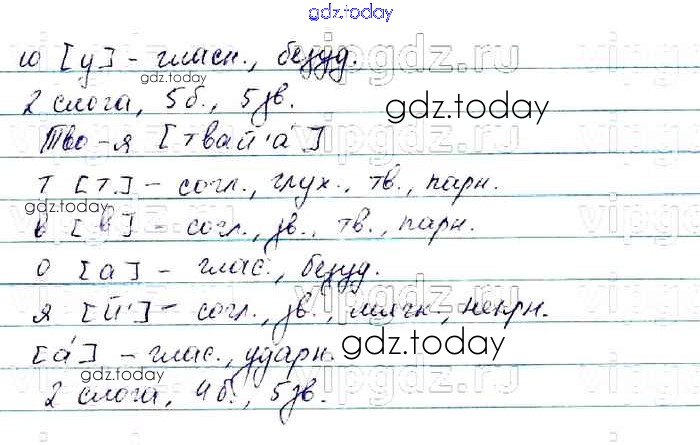 gdz.today
ю [у] - гласн., безуд.
gdz.today
2 слога, 5б., 5зв.
gdz.today
Тво-я [твай'а́]
т [т] - согл., глух., тв., парн.
gdz.today
в [в] - согл., зв., тв., парн.
о [а] - глас., безуд.
я [й'] - согл., зв., мягк., непрн.
[а́] - глас., ударн.
gdz.today
2 слога, 4б., 5зв.
vipgdz.ru